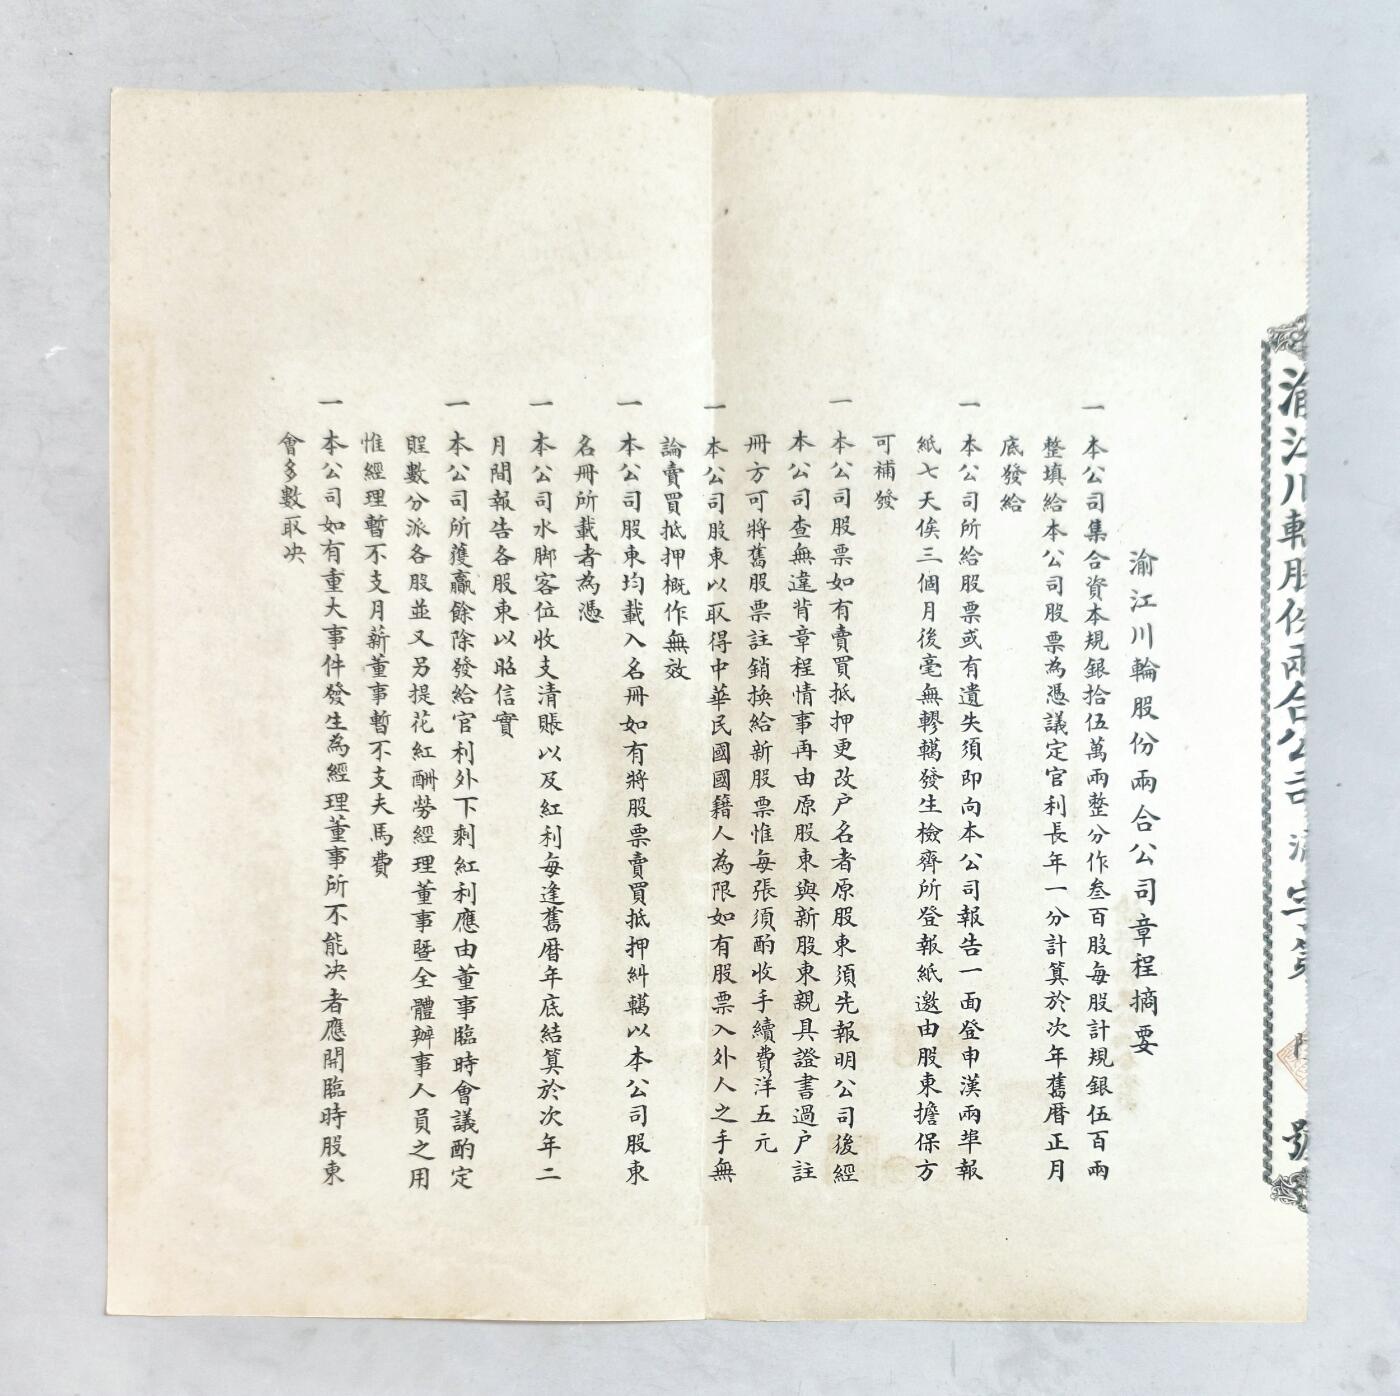 渝江川輪股份兩合公司 字第 號
渝江川輪股份兩合公司章程摘要
一本公司集合資本規銀拾伍萬兩整分作叁百股每股計規銀伍百兩
整填給本公司股票為憑議定官利長年一分計算於次年舊曆正月
底發給
一本公司所給股票或有遺失須即向本公司報告一面登申漢兩埠報
紙七天俟三個月後毫無轇轕發生檢齊所登報紙邀由股東擔保方
可補發
一本公司股票如有賣買抵押更改户名者原股東須先報明公司後經
本公司查無違背章程情事再由原股東與新股東親具證書過户註
冊方可將舊股票註銷換給新股票惟每張須酌收手續費洋五元
一本公司股東以取得中華民國國籍人為限如有股票入外人之手無
論賣買抵押概作無效
一本公司股東均載入名冊如有將股票賣買抵押糾轕以本公司股東
名冊所載者為憑
一本公司水脚客位收支清賬以及紅利每逢舊曆年底結算於次年二
月間報告各股東以昭信實
一本公司所獲贏餘除發給官利外下剩紅利應由董事臨時會議酌定
數分派各股並又另提花紅酬勞經理董事暨全體辦事人員之用
惟經理暫不支月薪董事暫不支夫馬費
一本公司如有重大事件發生為經理董事所不能决者應開臨時股東
會多數取决